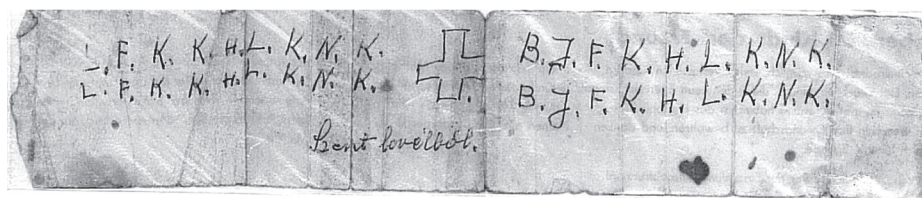 L. F. K. K. H. L. K. N. K.
L. F. K. K. H. L. K. N. K.
B. J. F. K. H. L. K. N. K.
B. J. F. K. H. L. K. N. K.
Szent levélből.